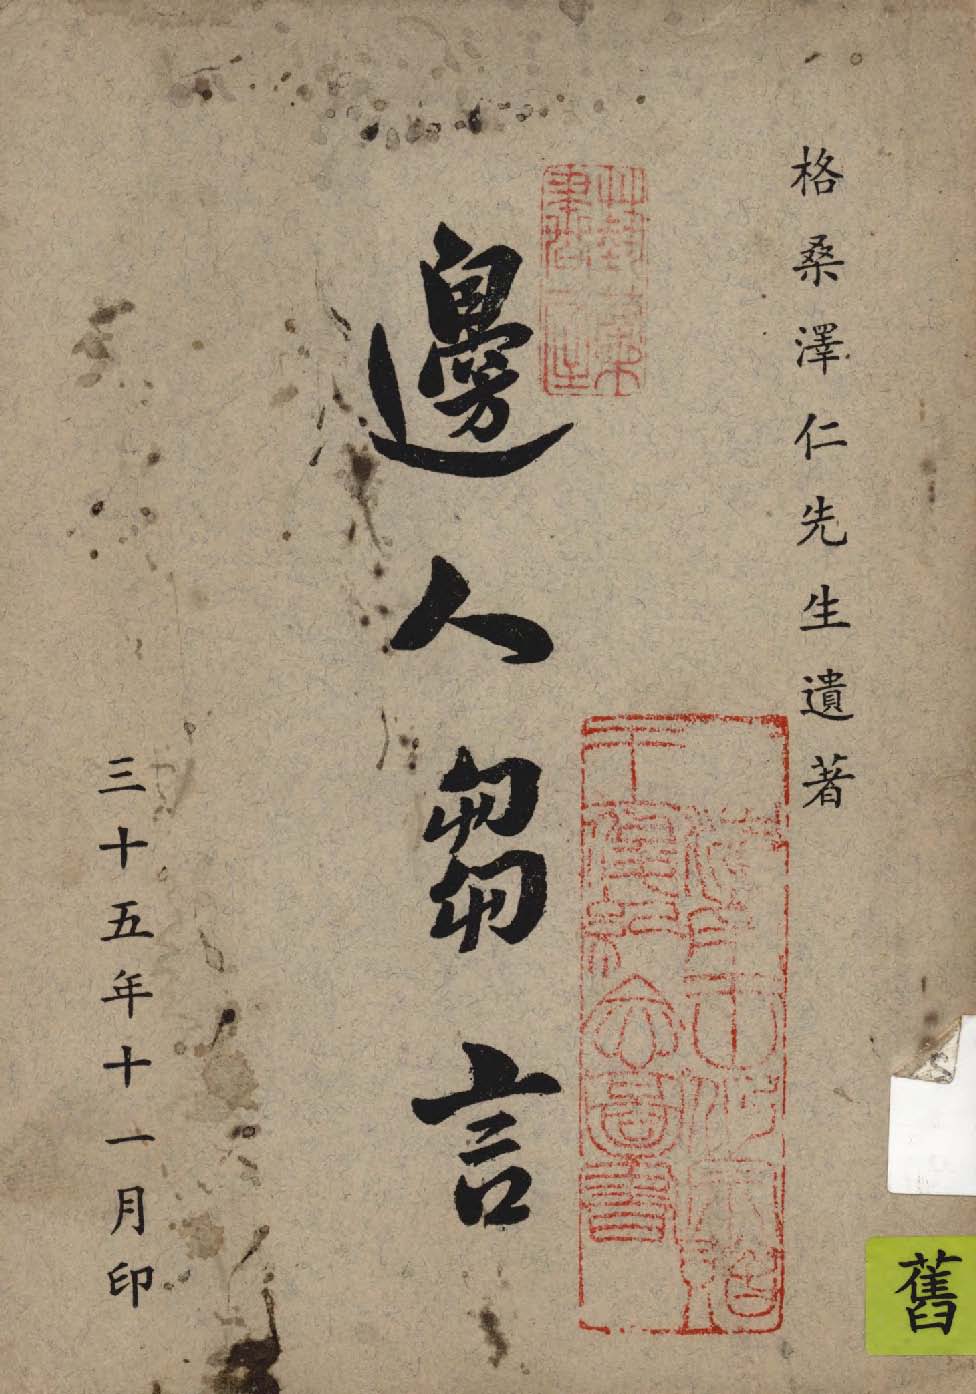 格桑澤仁先生遺著
邊人芻言
三十五年十一月印
舊